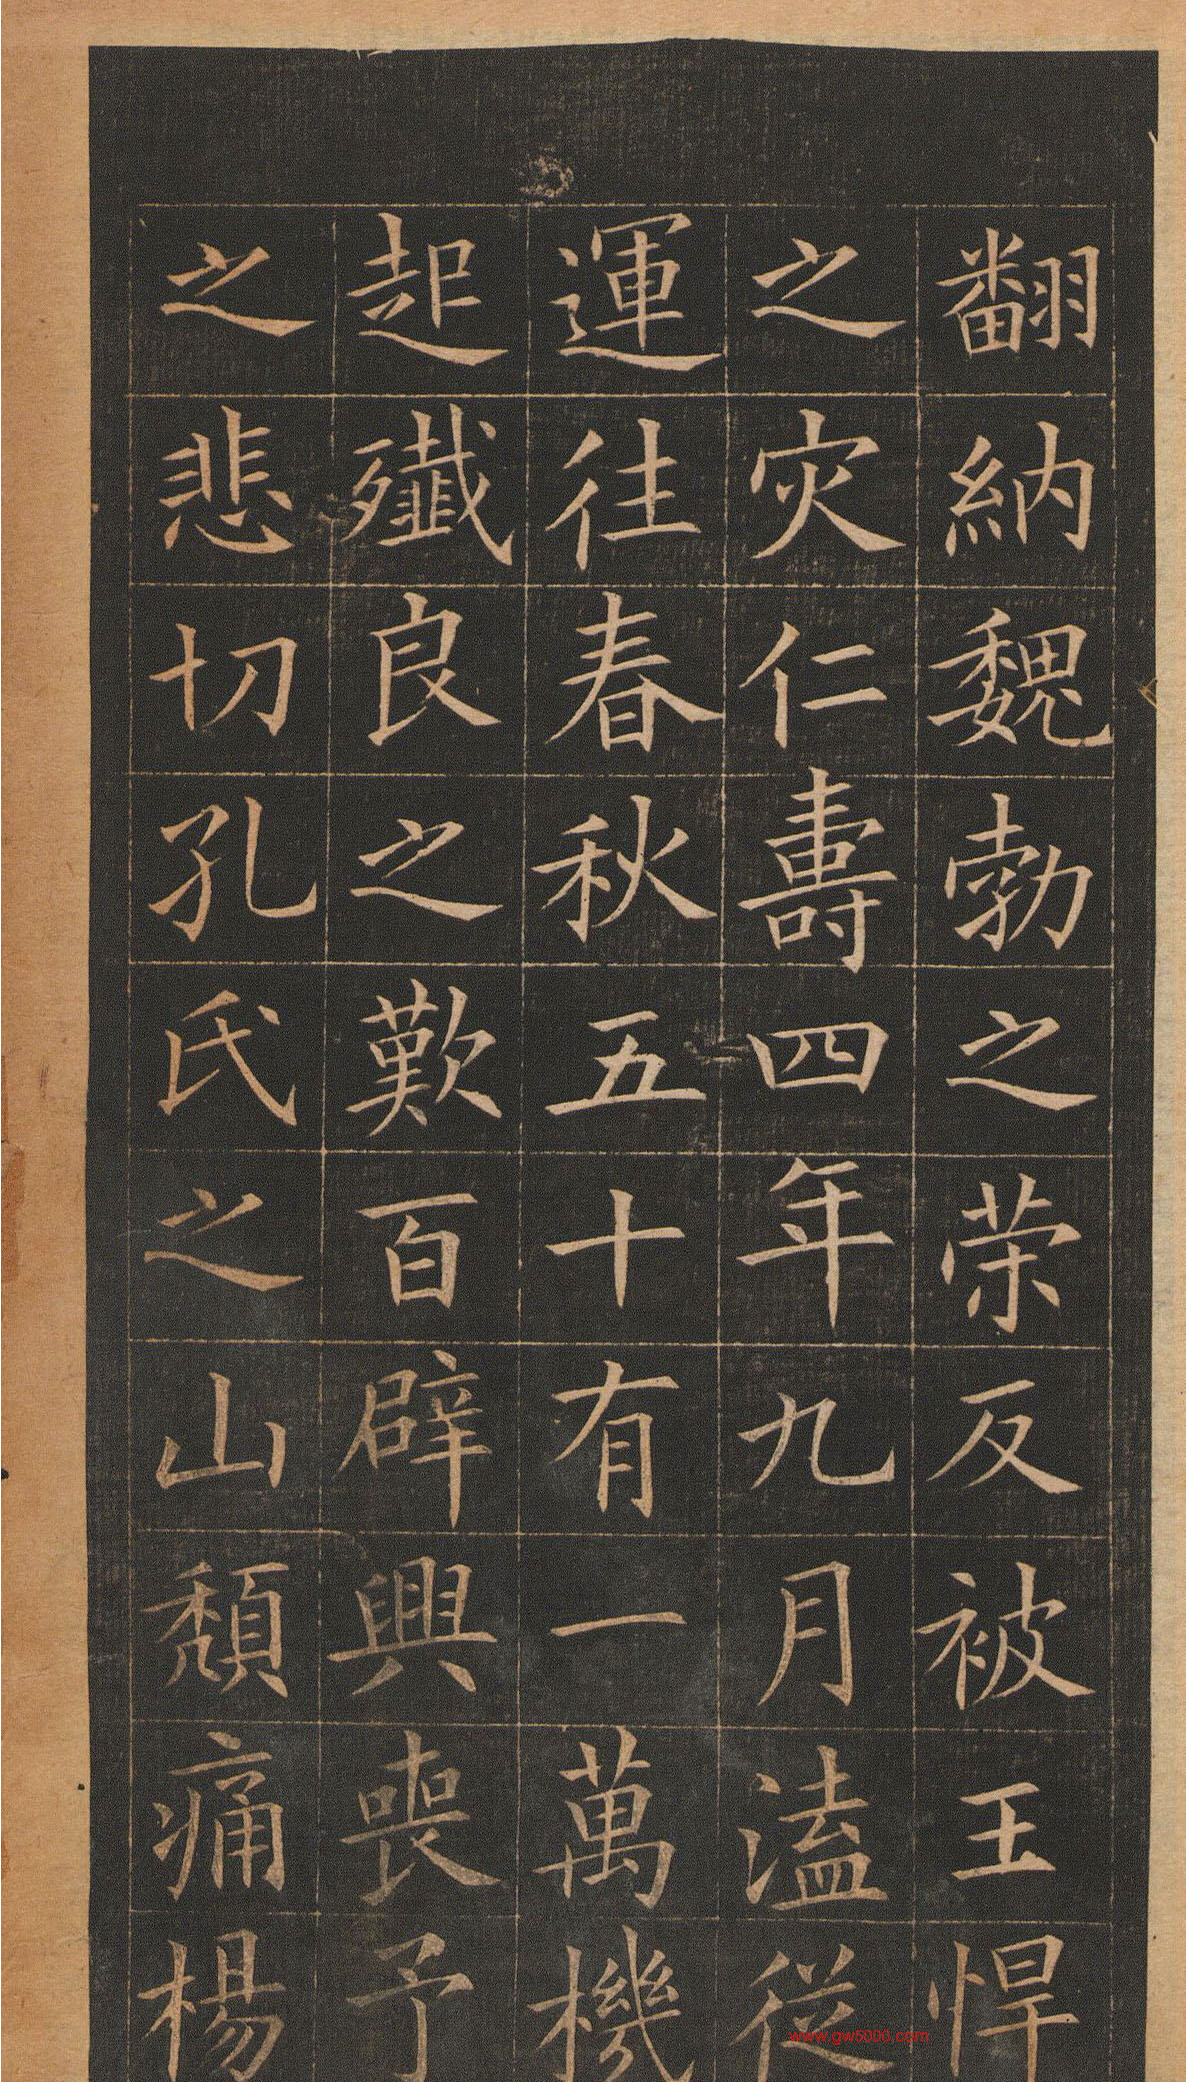 翻納魏勃之荣反被王悍
之灾仁壽四年九月溘從
運往春秋五十有一萬機
起殲良之歎百辟興喪予
之悲切孔氏之山頹痛楊
www.gw5000.com